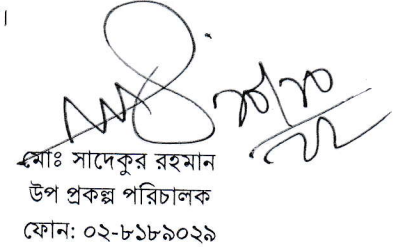 ।
মোঃ সাদেকুর রহমান
উপ প্রকল্প পরিচালক
ফোন: ০২-৮১৮৯০২৯